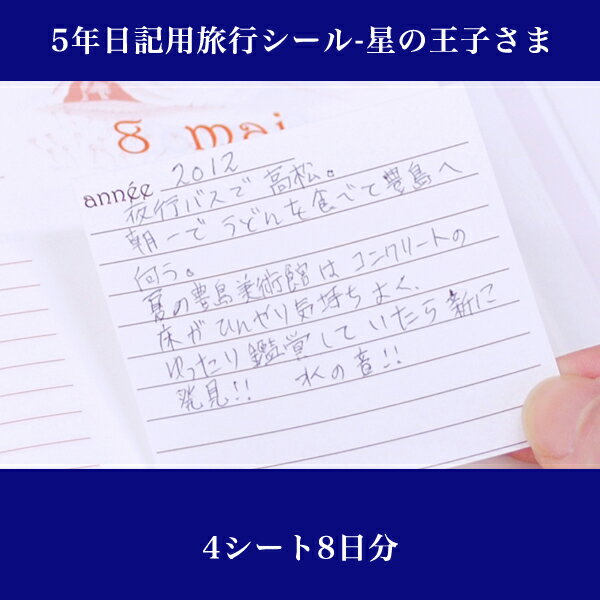 5年日記用旅行シール-星の王子さま
8 mai
année 2012
夜行バスで高松。
朝一でうどんを食べて豊島へ
向う。
夏の豊島美術館はコンクリートの
床がひんやり気持ちよく、
ゆったり鑑賞していたら新に
発見!! 水の音!!
4シート8日分